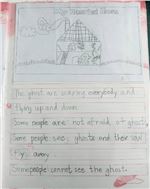 My Haunted House
The ghost are scaring everybody and
flying up and down.
Some people are not afraid of ghost
Some people see ghosts and they said
away
Some people cannot see the ghost.